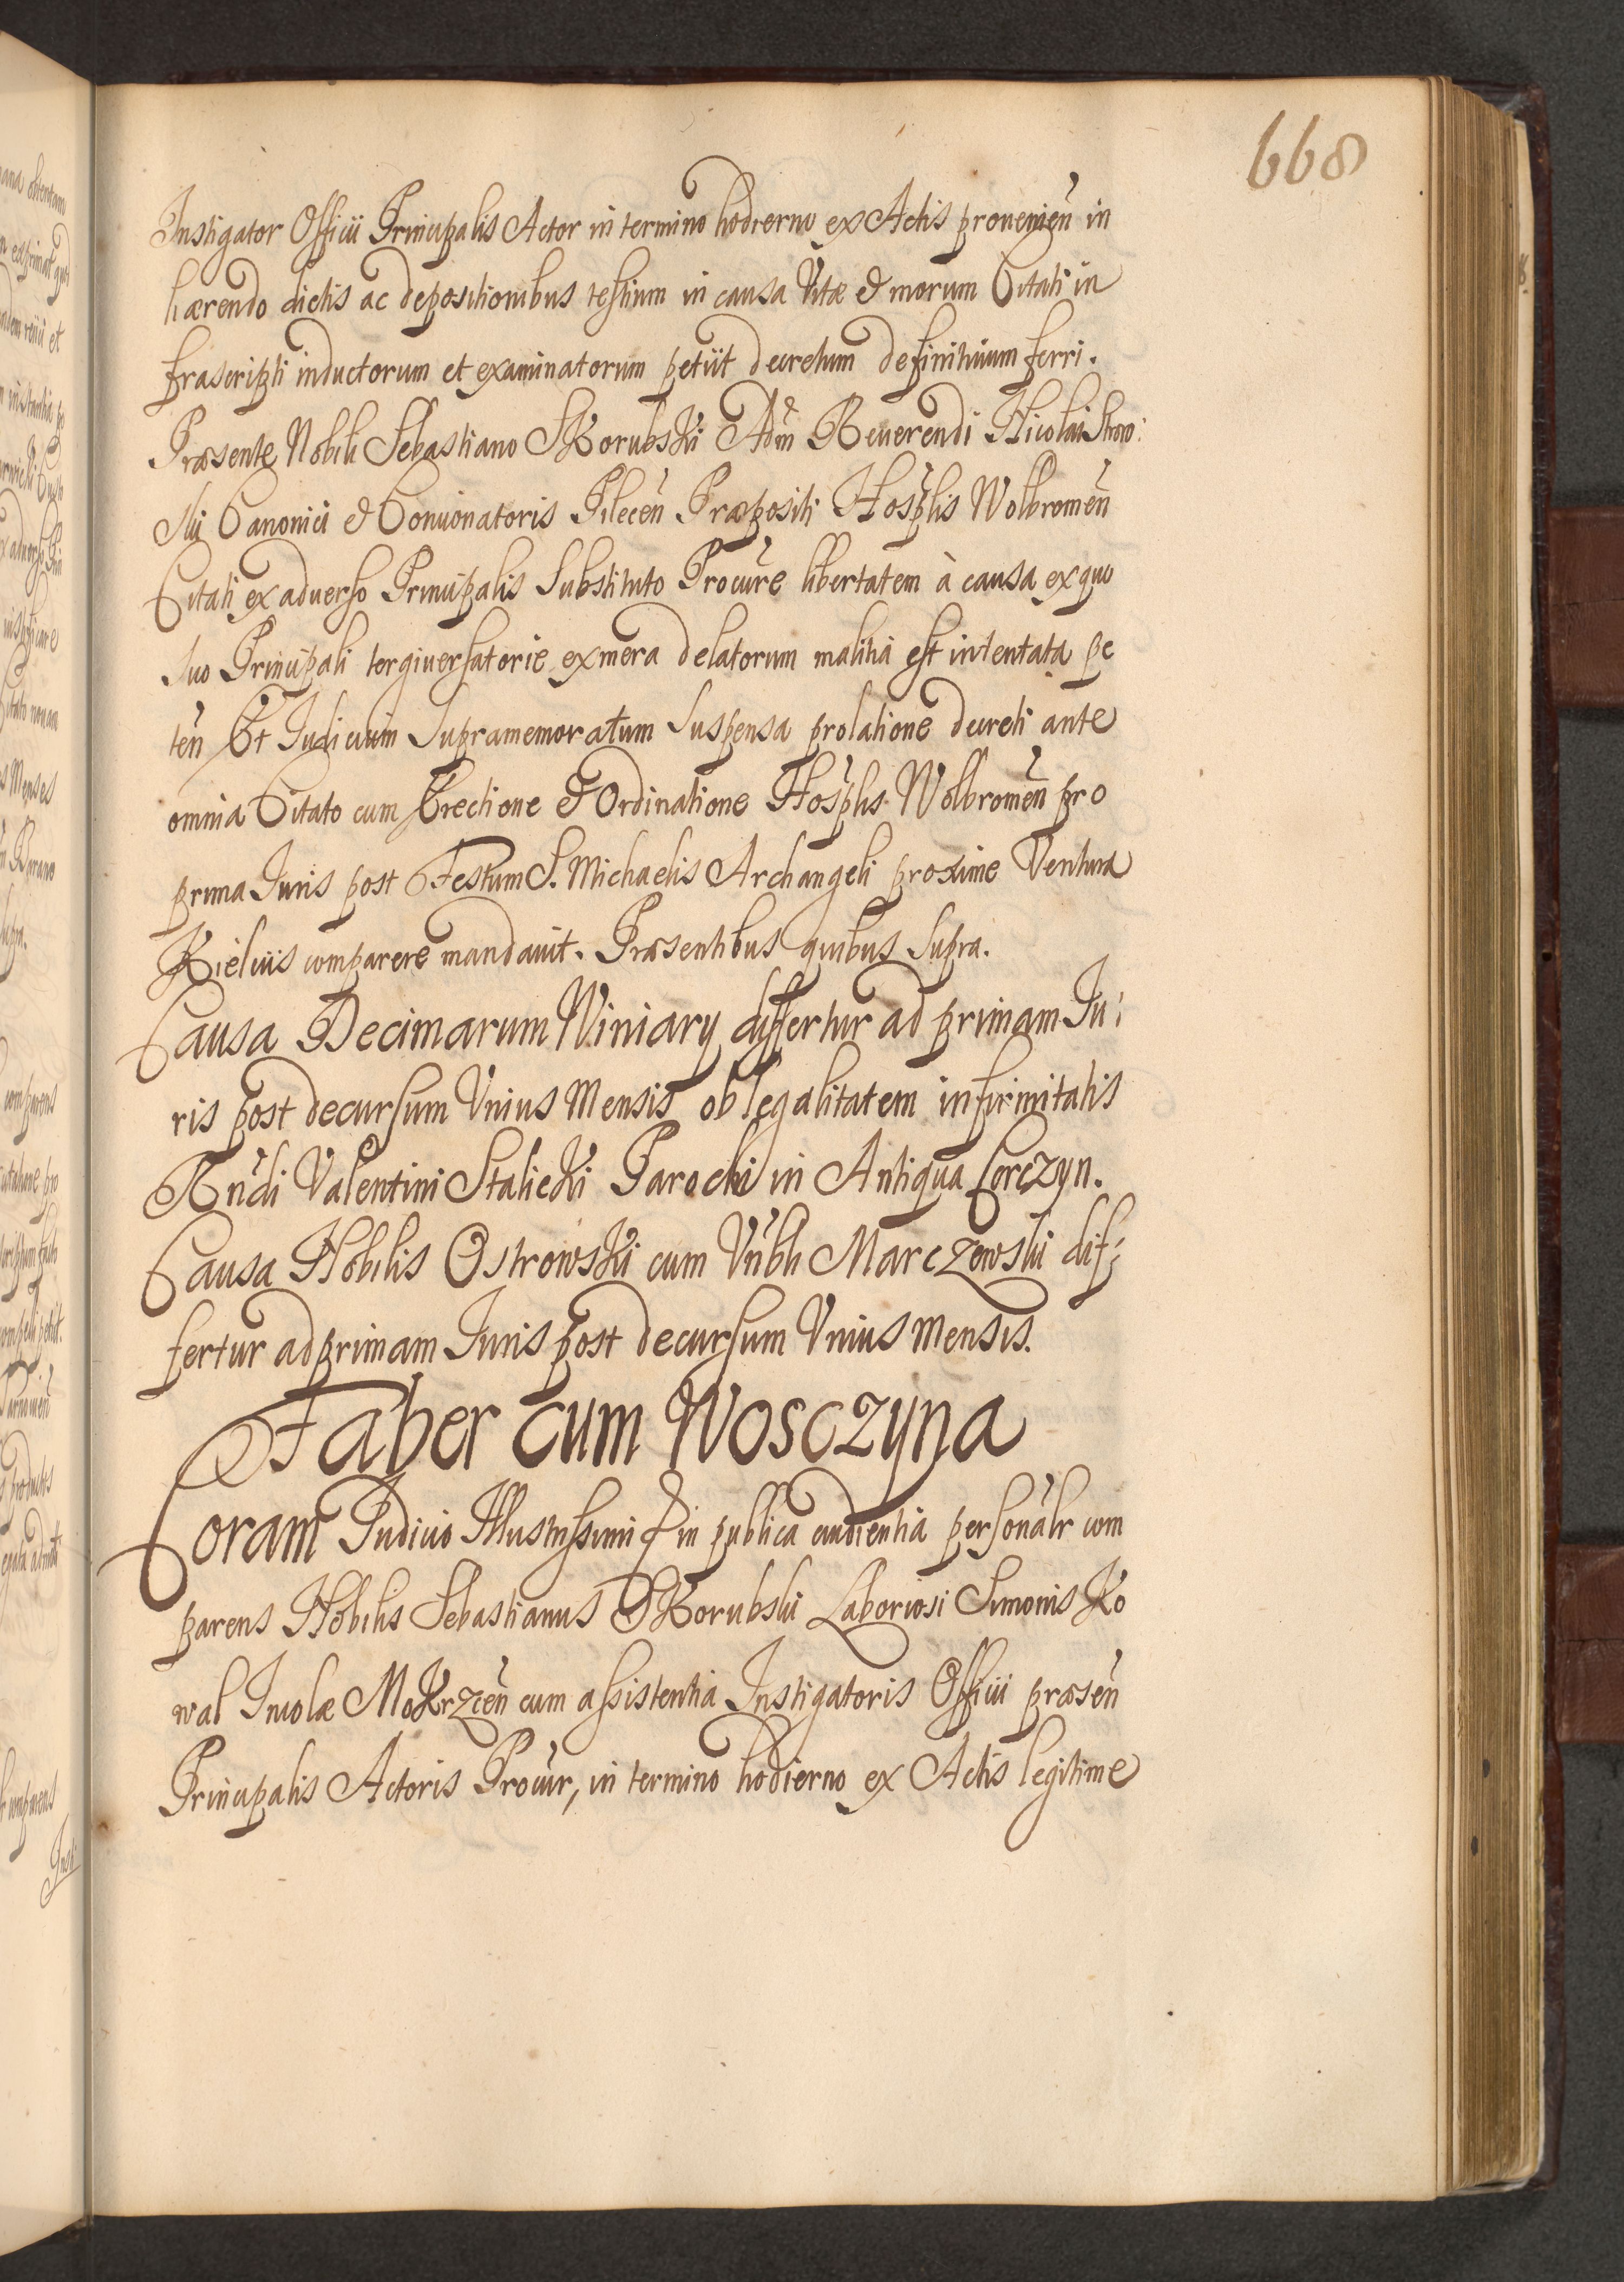 668
Instigator Officii Principalis Actor in termino hodierno ex Actis provenien̄ in
hærendo dictis ac depositionibus testium in causa Vitæ & morum Citati in
frascripti inductorum et examinatorum petiit decretum definitivum ferri.
Præsente Nobili Sebastiano SKorubsKi Adm̄ Reverendi Nicolai
Canonici & Concionatoris Pilecen̄ Præpositi Hosp̄lis Wolbromen̄
Citati ex adverso Principalis Substituto Procūre libertatem à causa ex quo
suo Principali tergiversatorie ex mera delatorum malitia est intentata pe
ten̄ Et Judicium Supramemoratum suspensa prolatione decreti ante
omnia Citato cum Erectione & Ordinatione Hosp̄lis Wolbromen̄ pro
prima Juris post Festum S. Michaelis Archangeli proxime Ventura
Kielciis comparere mandavit. Præsentibus quibus Supra.
Causa Decimarum Winiary differtur ad primam Ju:
ris post decursum Unius Mensis ob legalitatem infirmitatis
Rn̄di Valentini StalicKi Parochi in Antiqua Corczyn.
Causa Nobilis OstrowsKi cum Vn̄bli Marczewski dif:
fertur ad primam Juris post decursum Unius Mensis.
Faber cum Wosczyna
Coram Judicio Illustrissimi & in publica audientia personālr com
parens Nobilis Sebastianus SKorubski Laboriosi Simonis Ko
wal Incolæ MoKrzcen̄ cum assistentia Instigatoris Officii præsen̄
Principalis Actoris Procūr, in termino hodierno ex Actis legitime